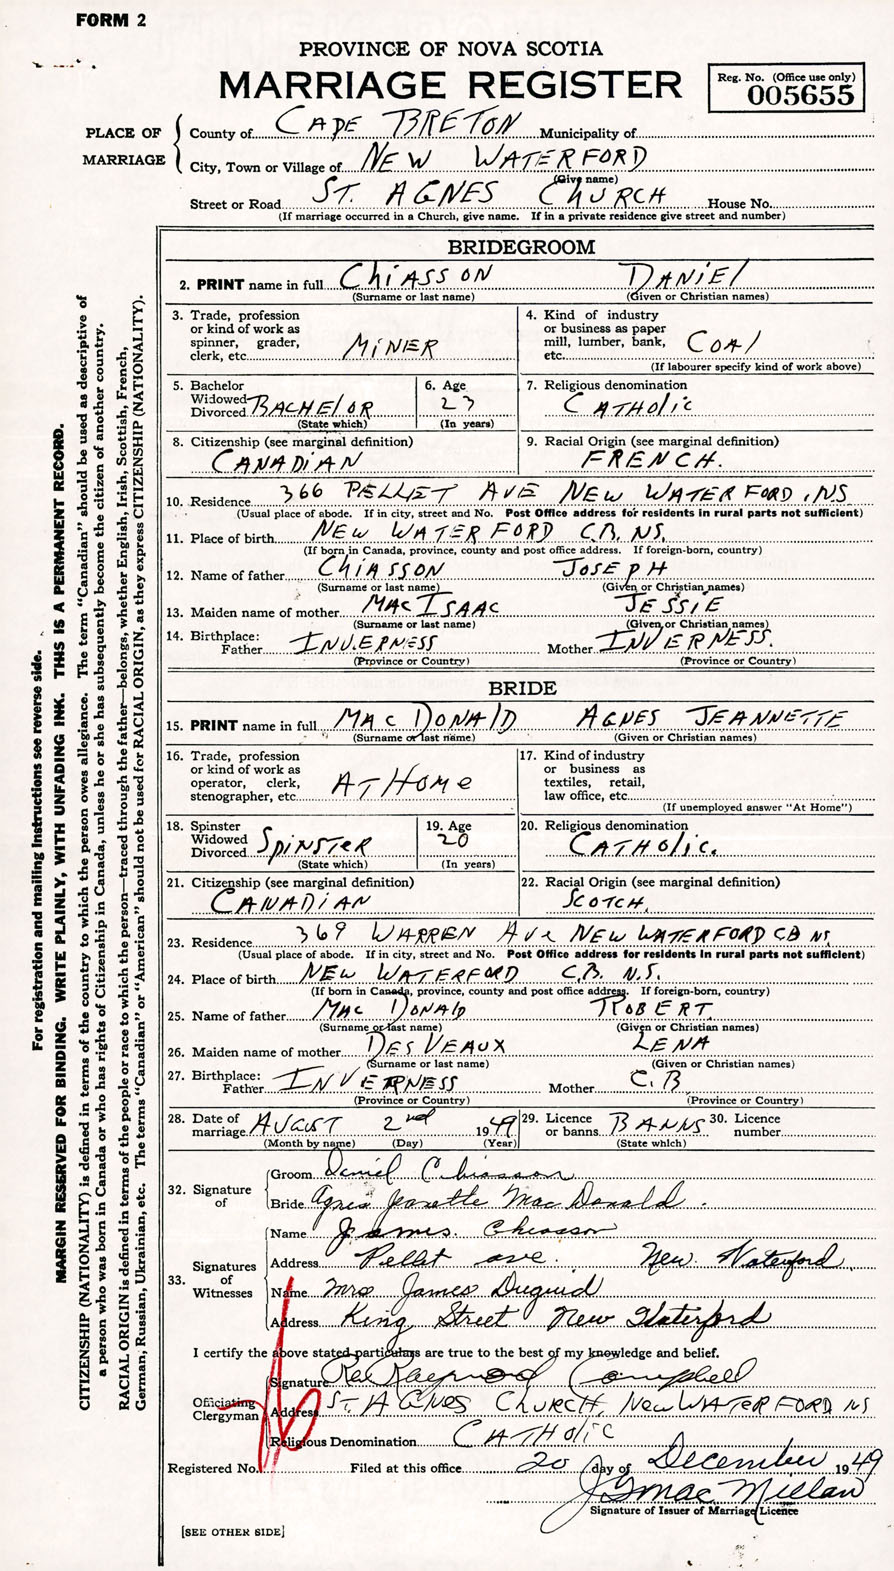 FORM 2
PROVINCE OF NOVA SCOTIA
MARRIAGE REGISTER
Reg. No. (Office use only)
005655
PLACE OF MARRIAGE
County of CAPE BRETON Municipality of
City, Town or Village of NEW WATERFORD
(Give name)
Street or Road ST. AGNES CHURCH House No.
(If marriage occurred in a Church, give name. If in a private residence give street and number)
For registration and mailing instructions see reverse side.
MARGIN RESERVED FOR BINDING. WRITE PLAINLY, WITH UNFADING INK. THIS IS A PERMANENT RECORD.
CITIZENSHIP (NATIONALITY) is defined in terms of the country to which the person owes allegiance. The term "Canadian" should be used as descriptive of
a person who was born in Canada or who has rights of Citizenship in Canada, unless he or she has subsequently become the citizen of another country.
RACIAL ORIGIN is defined in terms of the people or race to which the person—traced through the father—belongs, whether English, Irish, Scottish, French,
German, Russian, Ukrainian, etc. The terms "Canadian" or "American" should not be used for RACIAL ORIGIN, as they express CITIZENSHIP (NATIONALITY).
BRIDEGROOM
2. PRINT name in full CHIASSON DANIEL
(Surname or last name) (Given or Christian names)
3. Trade, profession or kind of work as spinner, grader, clerk, etc. MINER
4. Kind of industry or business as paper mill, lumber, bank, etc. COAL
(If labourer specify kind of work above)
5. Bachelor Widowed Divorced BACHELOR
(State which)
6. Age 23
(In years)
7. Religious denomination
CATHOLIC
8. Citizenship (see marginal definition)
CANADIAN
9. Racial Origin (see marginal definition)
FRENCH.
10. Residence 366 PELLET AVE NEW WATERFORD, NS
(Usual place of abode. If in city, street and No. Post Office address for residents in rural parts not sufficient)
11. Place of birth NEW WATERFORD C.B. NS.
(If born in Canada, province, county and post office address. If foreign-born, country)
12. Name of father CHIASSON JOSEPH
(Surname or last name) (Given or Christian names)
13. Maiden name of mother MAC ISAAC JESSIE
(Surname or last name) (Given or Christian names)
14. Birthplace: Father INVERNESS Mother INVERNESS.
(Province or Country) (Province or Country)
BRIDE
15. PRINT name in full MAC DONALD AGNES JEANNETTE
(Surname or last name) (Given or Christian names)
16. Trade, profession or kind of work as operator, clerk, stenographer, etc. AT HOME
17. Kind of industry or business as textiles, retail, law office, etc.
(If unemployed answer "At Home")
18. Spinster Widowed Divorced SPINSTER
(State which)
19. Age
20
(In years)
20. Religious denomination
CATHOLIC.
21. Citizenship (see marginal definition)
CANADIAN
22. Racial Origin (see marginal definition)
SCOTCH.
23. Residence 369 WARREN AVE NEW WATERFORD CB NS
(Usual place of abode. If in city, street and No. Post Office address for residents in rural parts not sufficient)
24. Place of birth NEW WATERFORD C.B. N.S.
(If born in Canada, province, county and post office address. If foreign-born, country)
25. Name of father MAC DONALD ROBERT.
(Surname or last name) (Given or Christian names)
26. Maiden name of mother DESVEAUX LENA
(Surname or last name) (Given or Christian names)
27. Birthplace: Father INVERNESS Mother C.B
(Province or Country) (Province or Country)
28. Date of marriage AUGUST 2nd 1949
(Month by name) (Day) (Year)
29. Licence or banns BANNS
(State which)
30. Licence number
32. Signature of
Groom Daniel Chiasson
Bride Agnes Jeanette Mac Donald.
33. Signatures of Witnesses
Name James. Chiasson
Address Pellet ave. New. Waterford.
Name Mrs James Duguid
Address King Street New Waterford
I certify the above stated particulars are true to the best of my knowledge and belief.
Officiating Clergyman
Signature Rev Raymond Campbell
Address ST. AGNES CHURCH, NEW WATERFORD NS
Religious Denomination CATHOLIC
Registered No. Filed at this office 20 day of December 1949
J G Mac Millan
Signature of Issuer of Marriage Licence
[SEE OTHER SIDE]